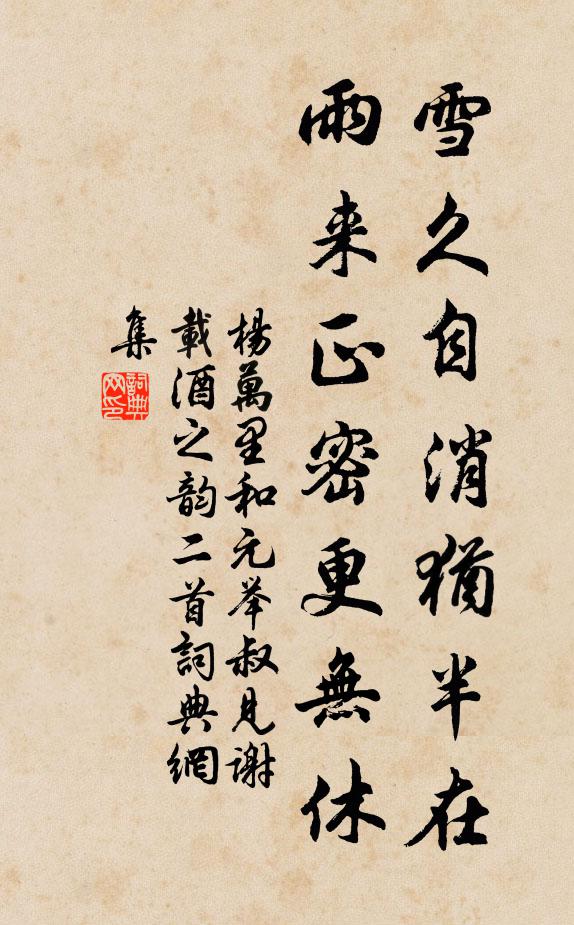 雪久自消猶半在
雨来正密更無休
楊萬里和元举叔見謝
載酒之韵二首詞典網
集
詞典
网印